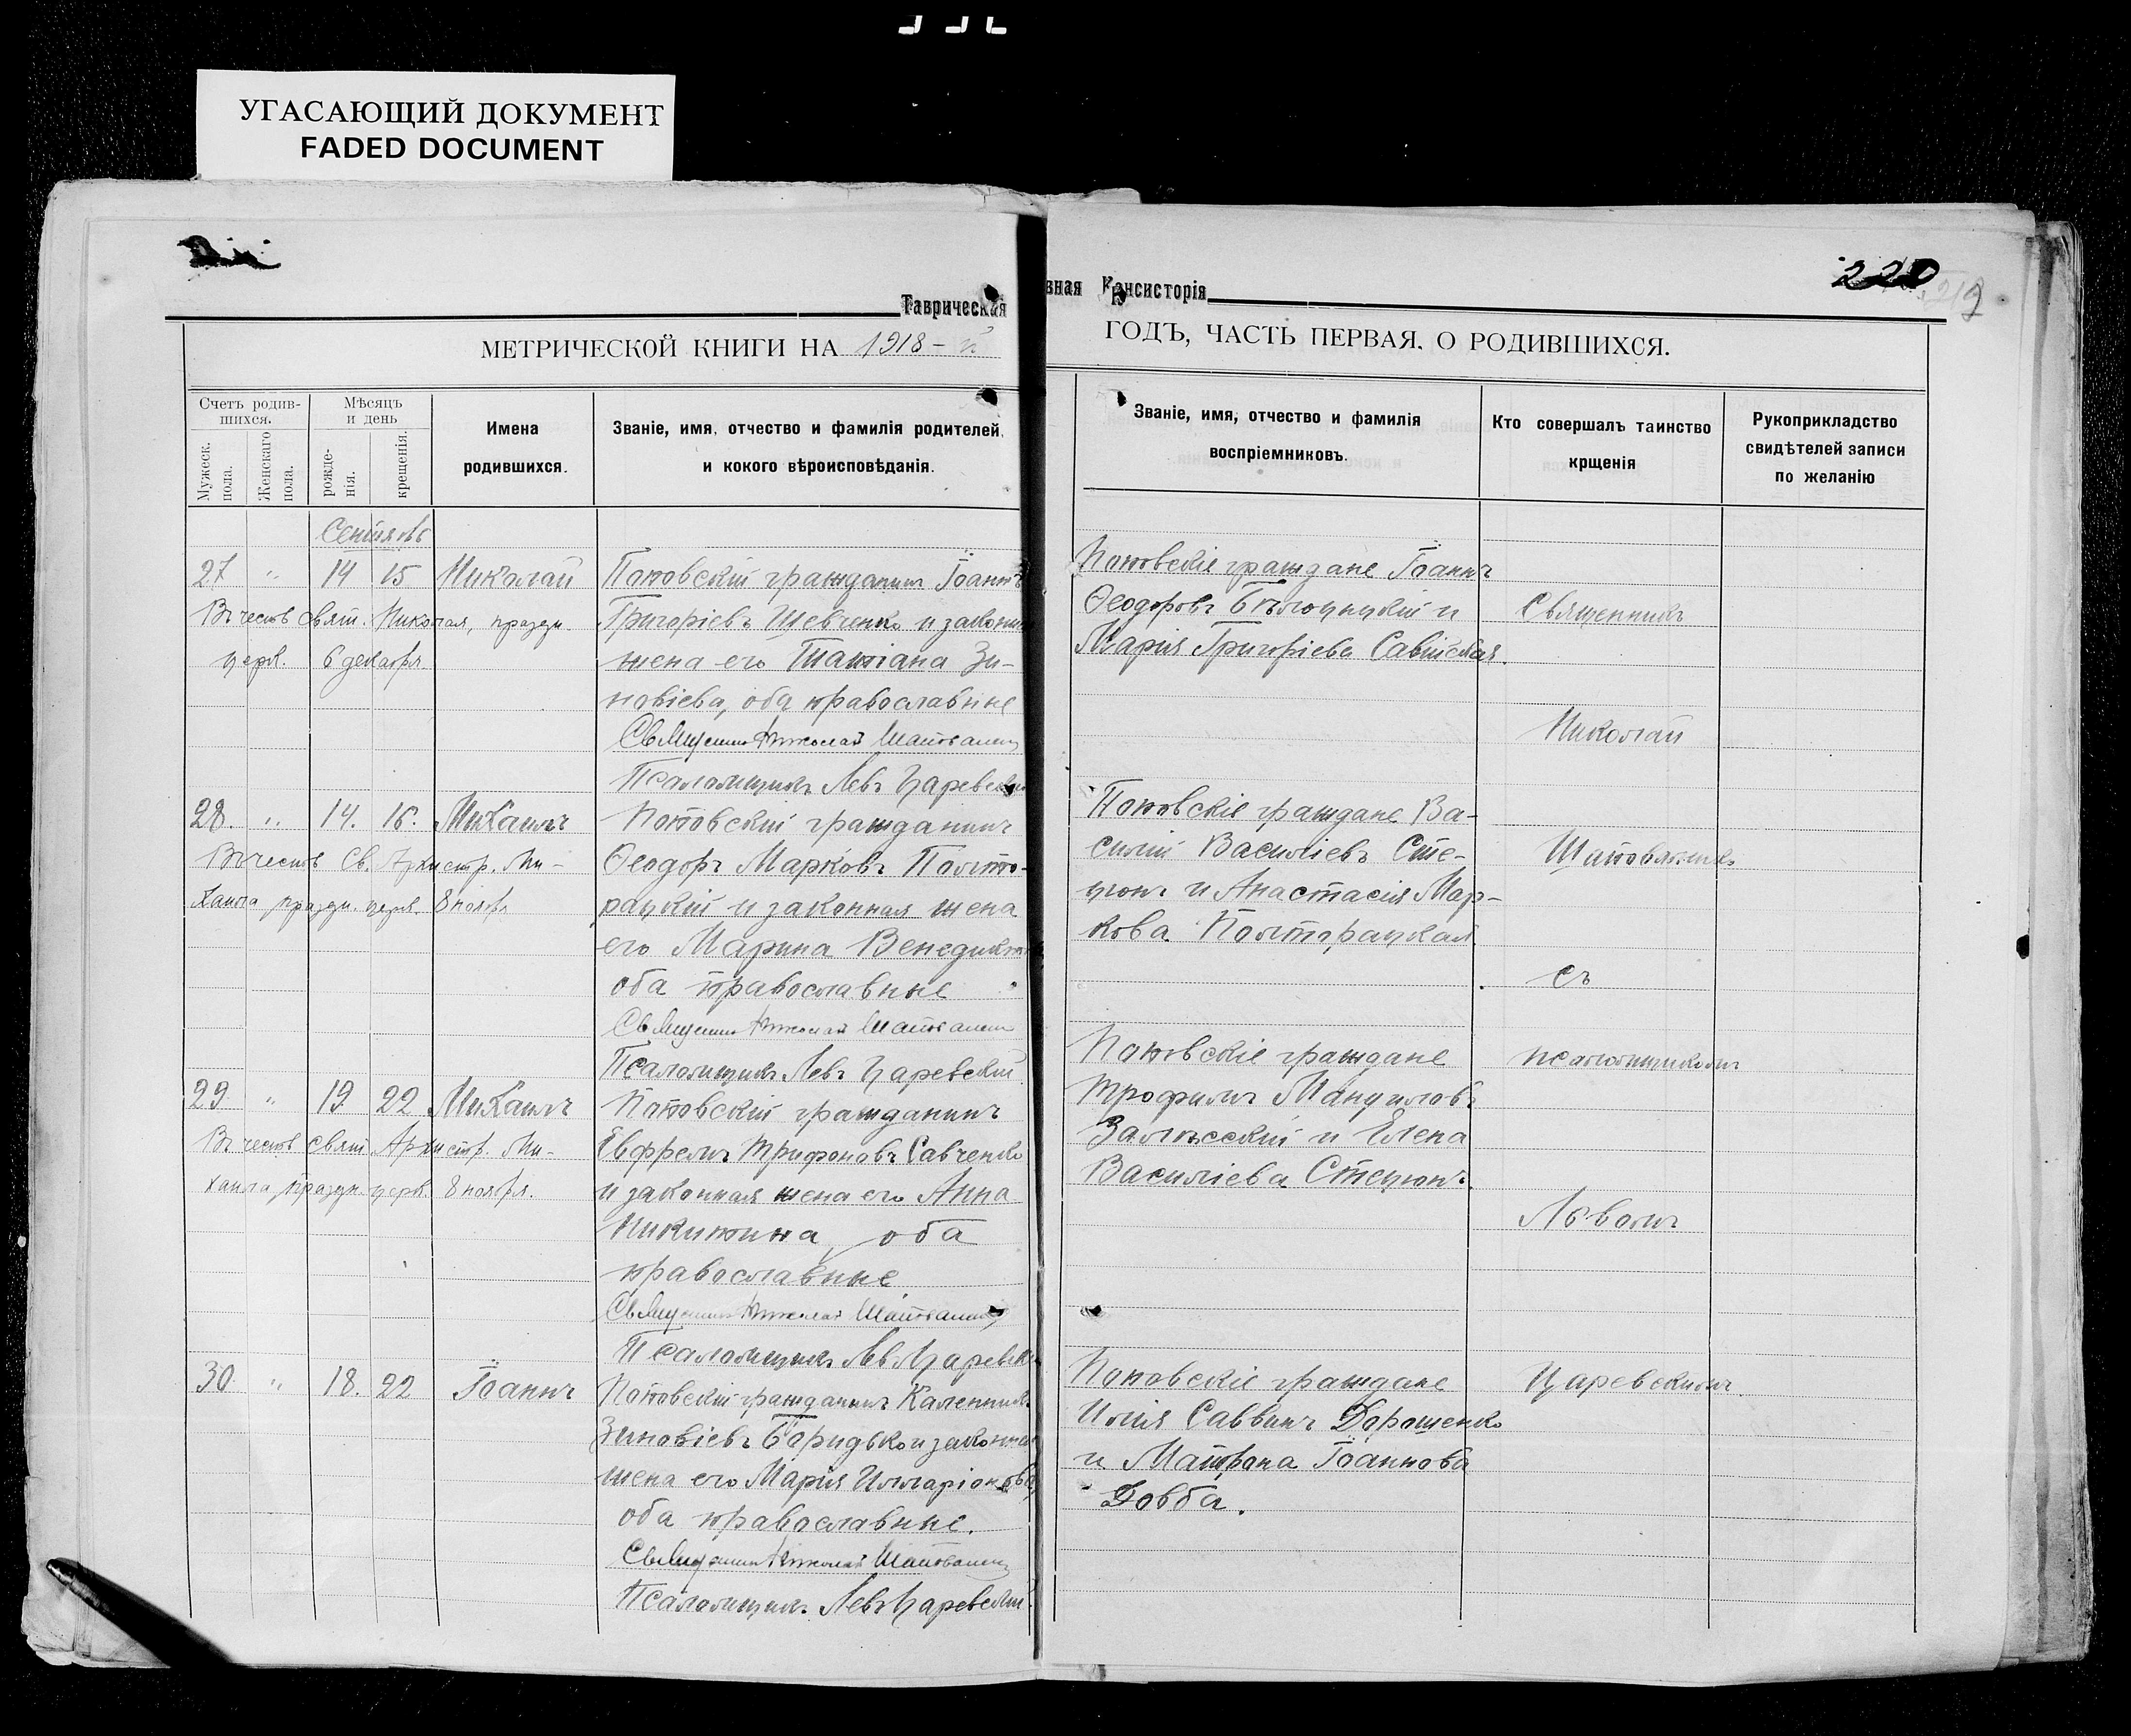 УГАСАЮЩИЙ ДОКУМЕНТ
FADED DOCUMENT
Таврическая
МЕТРИЧЕСКОЙ КНИГИ НА 1918-й
Счетъ родив-
шихся.
Мужеск. пола.
Женскаго пола.
Мѣсяцъ
и день
рожде-
нія.
крещенія.
Имена
родившихся.
Званіе, имя, отчество и фамилія родителей,
и кокого вѣроисповѣданія.
Сентябрь
27 " 14 15 Николай Поповскій гражданинъ Іоаннъ
Въ честь свят. Николая, праздн. Григоріевъ Шевченко и законная
церк. 6 декабря жена его Татіана Зи-
новіева, оба православные
Священникъ Николай Шаповаленко
Псаломщикъ Левъ Царевскій
28. " 14. 16. Михаилъ Поповскій гражданинъ
Въ честь Св. Архистр. Ми- Ѳеодоръ Марковъ Полто-
хаила праздн. церк. 8 ноября рацкій и законная жена
его Марина Венедиктова
оба православные
Священникъ Николай
Псаломщикъ Левъ Царевскій
29 " 19 22 Михаилъ Поповскій гражданинъ
Въ честь свят. Архистр. Ми- Евфремъ Трифоновъ Савченко
хаила праздн. церк. 8 ноября. и законная жена его Анна
Никитина, оба
православные
Священникъ Николай
Псаломщикъ Левъ Царевскій
30 " 18. 22 Іоаннъ Поповскій гражданинъ Каленникъ
Зиновіевъ и законная
жена его Марія Илларіонова,
оба православные.
Священникъ Николай
Псаломщикъ Левъ Царевскій
вная Консисторія
220
219
ГОДЪ, ЧАСТЬ ПЕРВАЯ, О РОДИВШИХСЯ.
Званіе, имя, отчество и фамилія
воспріемниковъ.
Кто совершалъ таинство
крщенія
Рукоприкладство
свидѣтелей записи
по желанію
Поповскіе граждане Іоаннъ
Ѳеодоровъ и Священникъ
Марія Григоріева Савицкая.
Николай
Поповскіе граждане Ва-
силій Василіевъ Сте-
цюкъ и Анастасія Мар-
кова Полторацкая.
съ
Поповскіе граждане псаломщикомъ
Трофимъ Мануиловъ
Залѣсскій и Елена
Василіева Стецюкъ.
Львомъ
Поповскіе граждане Царевскимъ.
Илія Саввинъ Дорошенко
и Матрона Іоаннова
Довба.